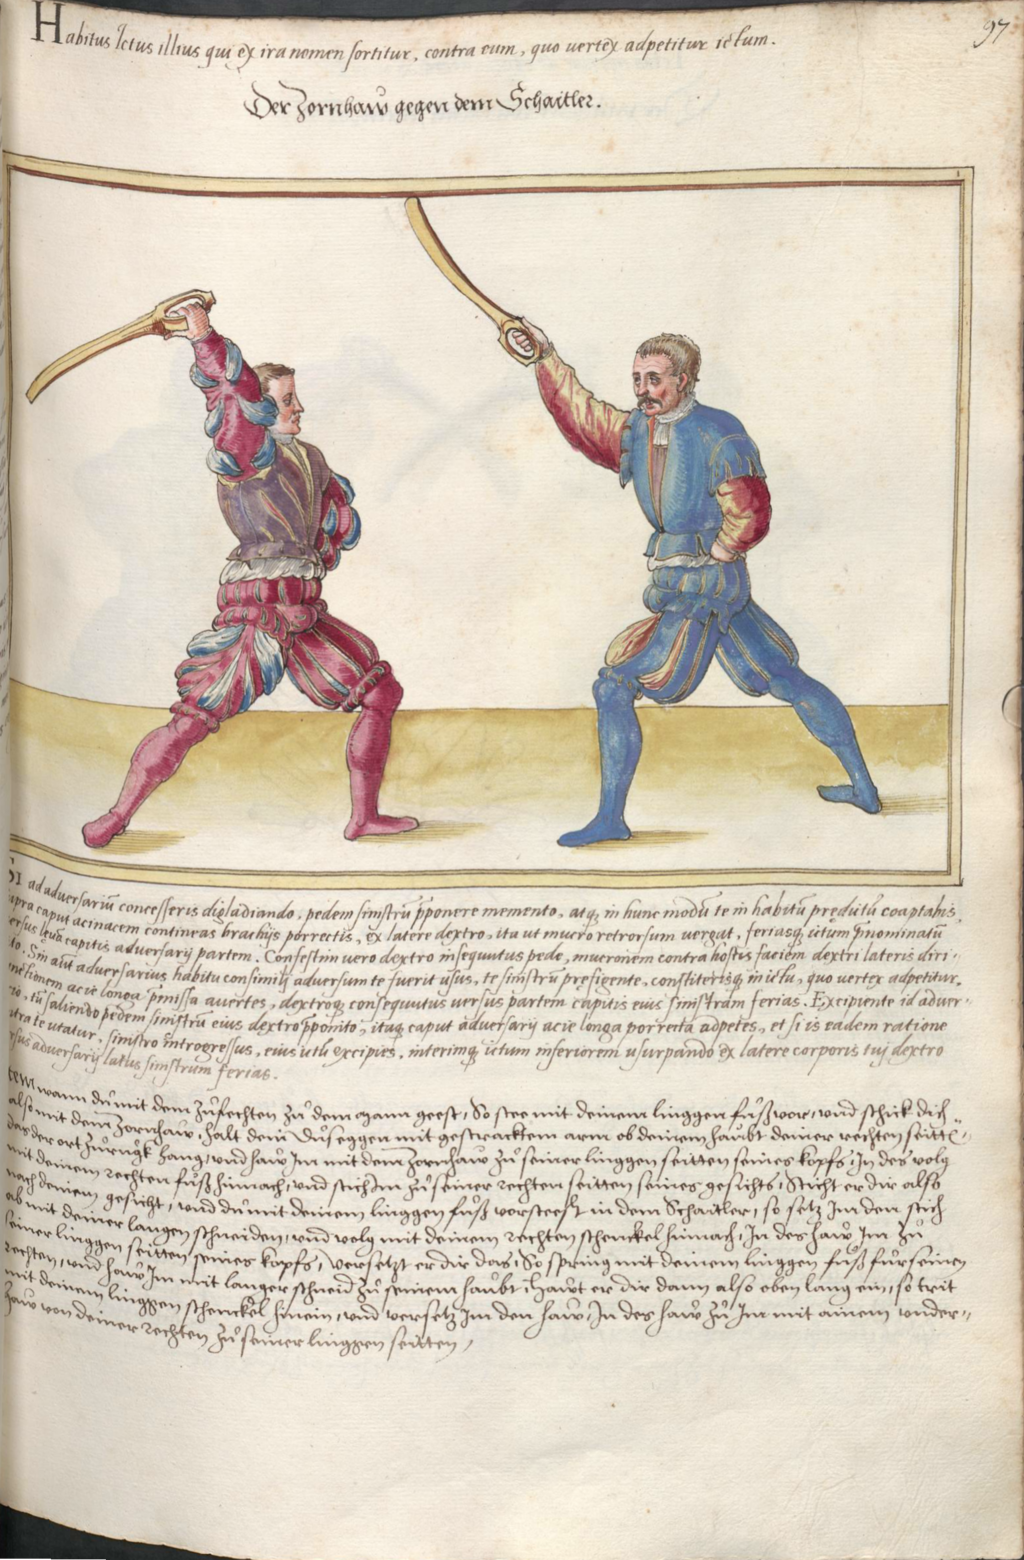 97
Habitus Ictus illius qui ex ira nomen sortitur, contra eum, quo uertex adpetitur ictum.
Der Zornhaw gegen dem Schaitler.
1
SI ad adversariũ concesseris digladiando, pedem sinistrũ p̃ponere memento, atq; in hunc modũ te in habitũ predictũ coaptabis,
supra caput acinacem contineas brachijs porrectis, ex latere dextro, ita ut mucro retrorsum uergat, feriasq; ictum p̃nominatũ
uersus leua capitis aduersarij partem. Confestim uero dextro insequutus pede, mucronem contra hostis faciem dextri lateris diri-
to. Sin aũt aduersarius habitu consimili aduersum te fuerit usus, te sinistrũ prefigente, constiterisq; in ictu, quo uertex adpetitur,
acie longa p̃missa auertes, dextroq; consequutus uersus partem capitis eius sinistram ferias. Excipiente id aduer-
rio, tũ saliendo pedem sinistrũ eius dextro p̃ponito, ituq; caput aduersarij acie longa porrecta adpetes, et si is eadem ratione
utra te utatur, sinistro introgressus, eius ictũ excipies, interimq; ictum inferiorem usurpando ex latere corporis tuj dextro
rsus aduersarij latus sinistrum ferias.
Item wann du mit dem zufechten zu dem mann geest, So stee mit deinem linggen fuß vor, und schick dich
also mit dem Zornhaw, halt dein Duseggen mit gestracktem arm ob deinem haubt deiner rechten seitte,
das der ort zurugk hang, und haw Im mit dem Zornhaw zu seiner linggen seitten seines kopfs, In des volg
mit deinem rechten fuß hinnach, und stich Im zu seiner rechten seitten seines gesichts, Sticht er dir also
nach deinem gesicht, und du mit deinem linggen fuß vorsteest in dem Schaitler, so setz Im den stich
ab mit deiner langen schneiden, und volg mit deinem rechten schenckel hinnach, In des haw Im zu
seiner linggen seitten seines kopfs, versetzt er dir das, So spring mit deinem linggen fuß fur seinen
rechten, und haw Im mit langer schneid zu seinem haubt, Hawt er dir dann also oben lang ein, so trit
mit deinem linggen schenckel hinein, und versetz Im den haw, In des haw zu Im mit ainem under-
haw von deiner rechten zu seiner linggen seitten,